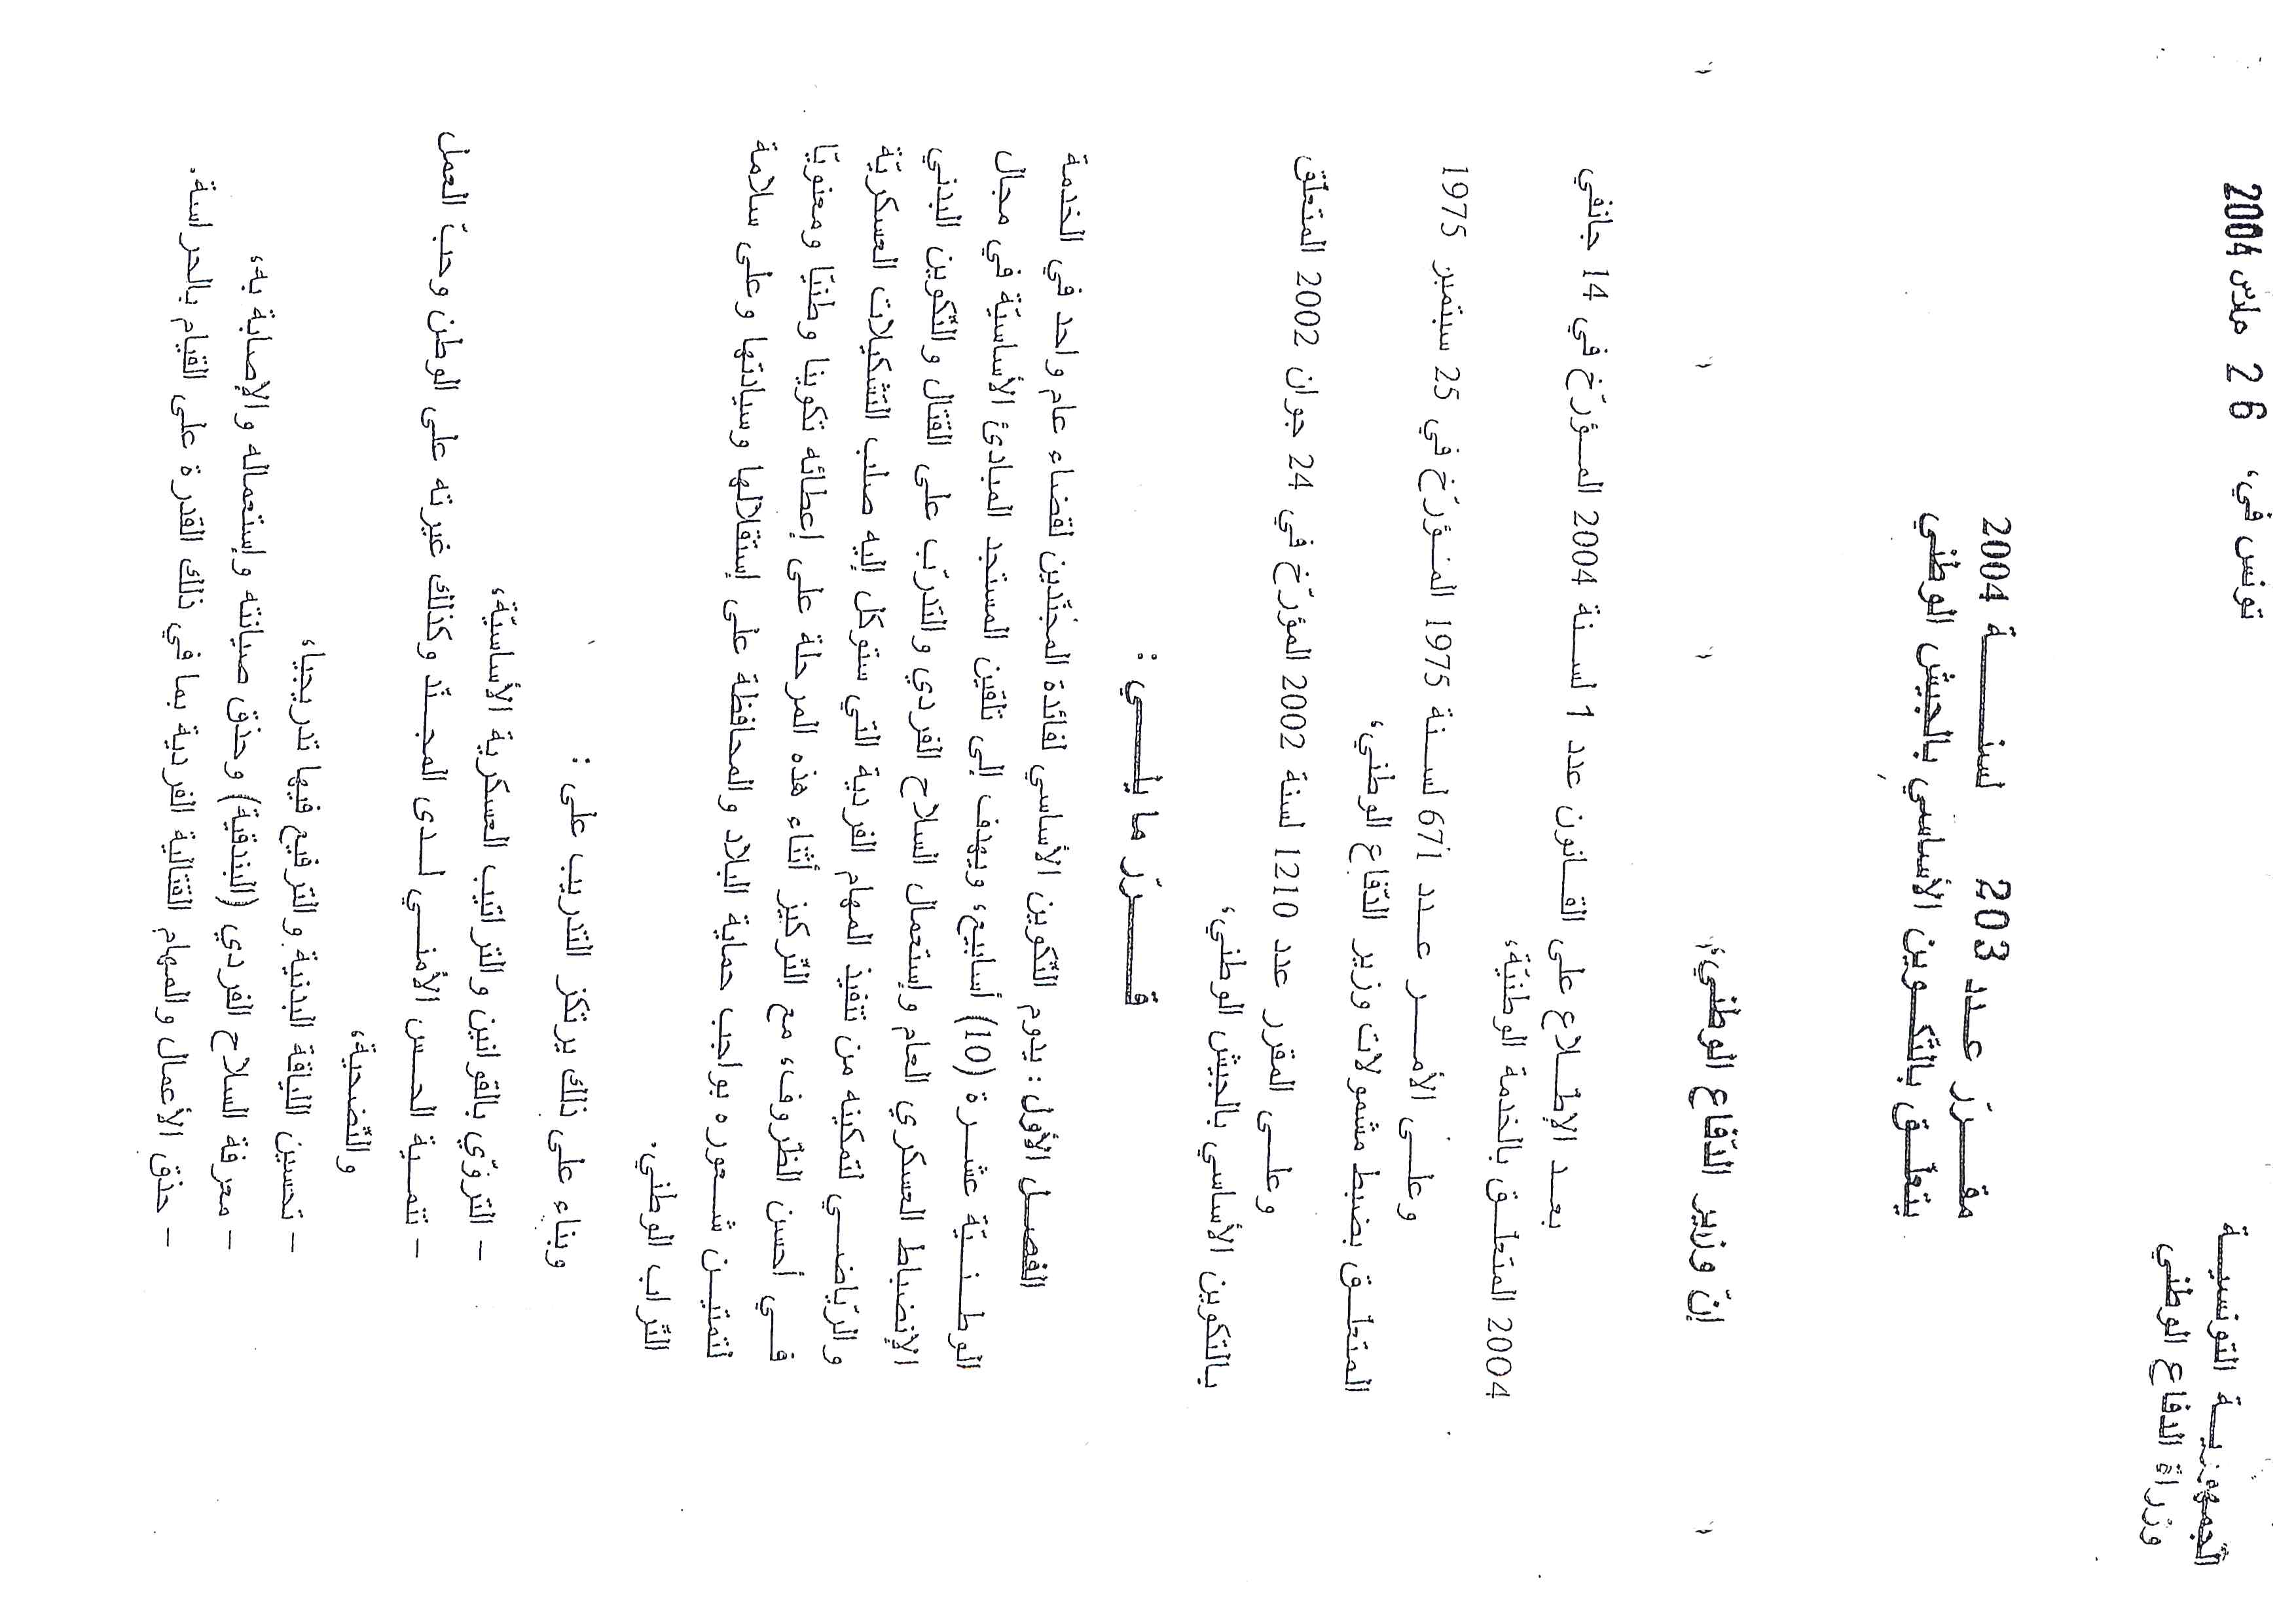 الجمهورية التونسية
وزراة الدفاع الوطني
تونس في، 2 6 مارس 2004
مقرّر عدد 203 لسنة 2004
يتعلّق بالتّكوين الأساسي بالجيش الوطني
إنّ وزير الدّفاع الوطني،
بعد الإطلاع على القانون عدد 1 لسنة 2004 المؤرّخ في 14 جانفي
2004 المتعلّق بالخدمة الوطنيّة،
وعلى الأمر عدد 671 لسنة 1975 المؤرّخ في 25 سبتمبر 1975
المتعلّق بضبط مشمولات وزير الدّفاع الوطني،
وعلى المقرر عدد 1210 لسنة 2002 المؤرّخ في 24 جوان 2002 المتعلّق
بالتكوين الأساسي بالجيش الوطني،
قرّر ما يلي :
الفصل الأول : يدوم التّكوين الأساسي لفائدة المجنّدين لقضاء عام واحد في الخدمة
الوطنيّة عشرة (10) أسابيع، ويهدف إلى تلقين المستجد المبادئ الأساسيّة في مجال
الإنضباط العسكري العام وإستعمال السلاح الفردي والتدرّب على القتال والتّكوين البدني
والرّياضي لتمكينه من تنفيذ المهام الفردية التي ستوكل إليه صلب التشكيلات العسكريّة
في أحسن الظّروف، مع التّركيز أثناء هذه المرحلة على إعطائه تكوينا وطنيّا ومعنويّا
لتمتين شعوره بواجب حماية البلاد والمحافظة على إستقلالها وسيادتها وعلى سلامة
التّراب الوطني.
وبناء على ذلك يرتكز التدريب على :
– التروّي بالقوانين والتراتيب العسكرية الأساسيّة،
– تنمية الحس الأمني لدى المجنّد وكذلك غيرته على الوطن وحبّ العمل
والتّضحية،
– تحسين اللياقة البدنية والترفيع فيها تدريجيا،
– معرفة السلاح الفردي (البندقية) وحذق صيانته وإستعماله والإصابة به،
– حذق الأعمال والمهام القتالية الفردية بما في ذلك القدرة على القيام بالحراسة.